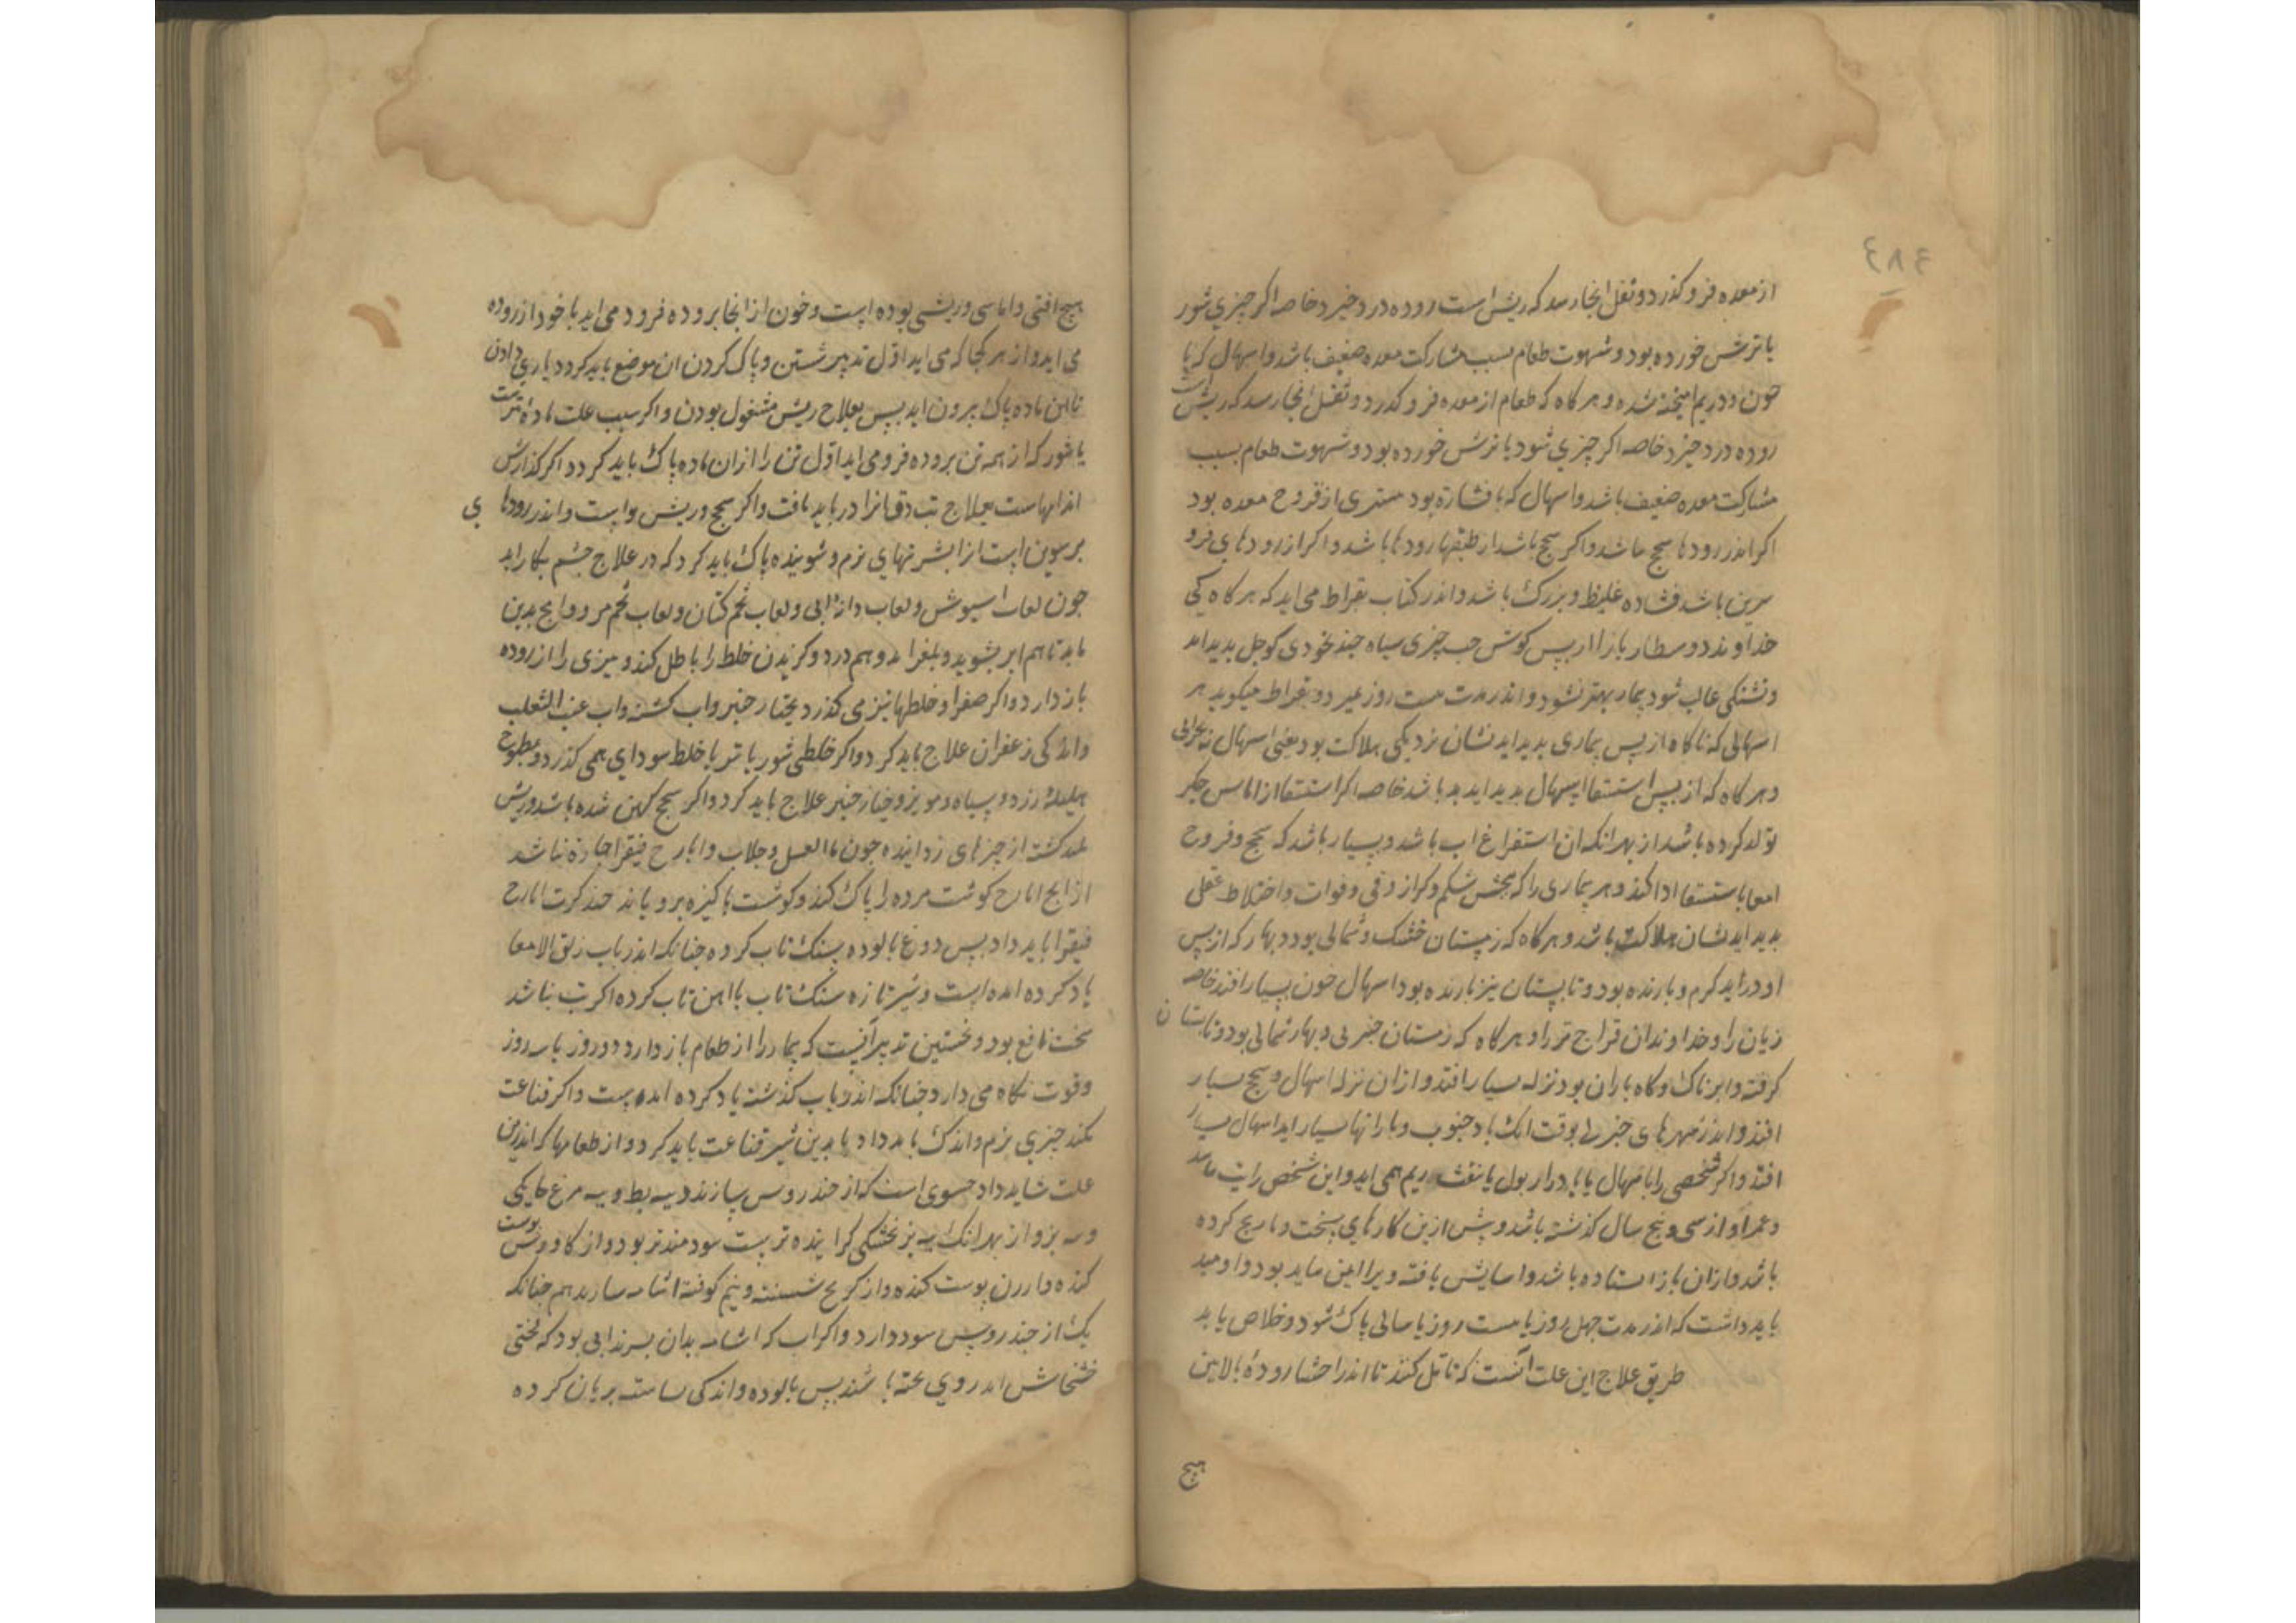 ٤٨٤
از معده فرو گذرد و ثقل انجا رسد که ریش است روده درد خیزد خاصه اکر چیزی شور
یا ترش خورده بود و شهوت طعام بسبب مشارکت معده ضعیف باشد و اسهال که با
خون و دریم امیخته شده و هر گاه که طعام از معده فرو گذرد و ثقل انجا رسد که ریش است
روده درد خیزد خاصه اکر چیزی شود یا ترش خورده بود و شهوت طعام بسبب
مشارکت معده ضعیف باشد و اسهال که با فشازه بود مستری از قروح معده بود
اکر اندر رودها سحج باشد و اکر سحج باشد از طبقها رودها باشد و اکر از رودهای فرو
سرین باشد فشاده غلیظ و بزرک باشد و اندر کتاب بقراط می اید که هر گاه کی
خداوند دوسطاریا را از پس کوش حب چیزی سیاه چند نخودی کوچک بدید اید
و تشنکی غالب شود بیمار بهتر نشود و اندر مدت بیست روز بمیرد و بقراط میکوید هر
اسهالی که ناکاه از پس بیماری بدید اید نشان نزدیکی هلاکت بود یعنی اسهال نه بحرانی
و هر گاه که از پس استسقا اسهال بدید اید بد باشد خاصه اکر استسقا از اماس جکر
تولد کرده باشد از بهر انکه ان استفراغ اب باشد و بسیار باشد که سحج و قروح
امعا باستسقا ادا کند و هر بیماری را که بخش شکم و کراز و قی و فواق و اختلاط عقل
بدید اید نشان هلاکت باشد و هر گاه که زمستان خشک و شمالی بود و بهار که از پس
او دراید کرم و بارنده بود و تابستان نیز بارنده بود اسهال خون بسیار افتد خاصه
زیان را و خداوندان قزاج تر را و هر گاه که زمستان جنوبی و بهار شمالی بود و تابستان
کرفته و ابرناک و گاه باران بود نزله بسیار افتد و ازان نزله اسهال و سحج بسیار
افتد و اندر شهرهای جنوبی بوقت انک باد جنوب و بارانها بسیار اید اسهال بسیار
افتد و اکر شخصی را باسهال یا باد رار بول یا بنفث ریم همی اید و این شخص راتب باشد
و عمر او از سی و پنج سال گذشته باشد و پیش ازین کارهای سخت و با رنج کرده
باشد و ازان باز استاده باشد و اسایش یافته ویرا این بباید بود و اومید
باید داشت که اندر مدت چهل روز یا بیست روز یا سالی پاک شود و خلاص یابد
طریق علاج این علت انست که تامل کنند تا اندر احشا رودۀ بالاین
هیچ
هیچ افتی و اماسی و ریشی بوده است و خون از انجا بروده فرود می اید یا خود از روده
می اید و از هر کجا که می اید اول تدبیر شستن و پاک کردن ان موضع باید کرد و یاری دادن
تا این ماده پاک برون اید پس بعلاج ریش مشغول بودن و اکر سبب علت مادۀ تیزست
یا شور که از همه تن بروده فرو می اید اول تن را از ان ماده پاک باید کرد و اکر گذارش
اندامهاست بعلاج تب دق انرا در باید یافت و اکر سحج و ریش واپست و اندر رودهای
برسوین است از ابشربتهای نرم و شوینده پاک باید کرد که در علاج چشم بکار اید
چون لعاب اسپوش و لعاب دانۀ ابی و لعاب تخم کتان و لعاب تخم مرو و انچ بدین
ماند تا هم ابر بشوید و بلغزاند و هم درد و کزیدن خلط را باطل کند و تیزی را از روده
باز دارد و اکر صفرا و خلطها تیز می کذرد بخیار جنبر و اب کشنه و اب عنب الثعلب
و اندکی زعفران علاج باید کرد و اکر خلطی شور یا تر یا خلط سودای همی کذرد و مطبوخ
هلیلۀ زرد و سیاه و مویز و خیار جنبر علاج باید کرد و اکر سحج کهن شده باشد و ریش
پلید کشته از چیزهای زداینده چون ماالعسل و جلاب و ایارج فیقرا چاره نباشد
از انچ ایارج کوشت مرده را پاک کند و کوشت پاکیزه برویاند چند کرت ایارج
فیقرا باید داد پس دوغ پالوده بسنک تاب کرده چنانکه اندر باب زلق الامعا
یاد کرده امده است و شیر تازه سنک تاب یا اهن تاب کرده اکر تب نباشد
سخت نافع بود و نخستین تدبیر انست که بیمار را از طعام باز دارد دو روز یا سه روز
و قوت نگاه می دارد چنانکه اندر باب کذشته یاد کرده امده ست و اکر قناعت
نکند چیزی نرم و اندک باید داد یا بدین شیر قناعت باید کرد و از طعامها که اندرین
علت شاید داد حسوی است که از خندروس سازند و پیه بط و پیه مرغ خانکی
و پیه بز و از بهر انک پیه بز بخشکی کراینده تر است سودمندتر بود و از کاورس پوست
کنده و ارزن پوست کنده و از کرنج شسته و نیم کوفته اشامه سازند هم چنانکه
یک از خندروس سود دارد و اکر اب که اشامه بدان پزند ابی بود که لختی
خشخاش اندر وی پخته باشند پس پالوده و اندکی نباست بریان کرده